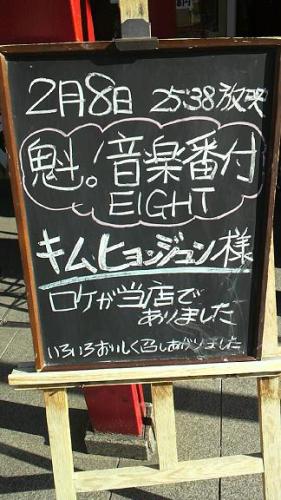 2月8日 25:38 放映
魁。!音楽番付
EIGHT
キムヒョンジュン様
ロケが当店で
ありました
いろいろおいしく召しあがりました